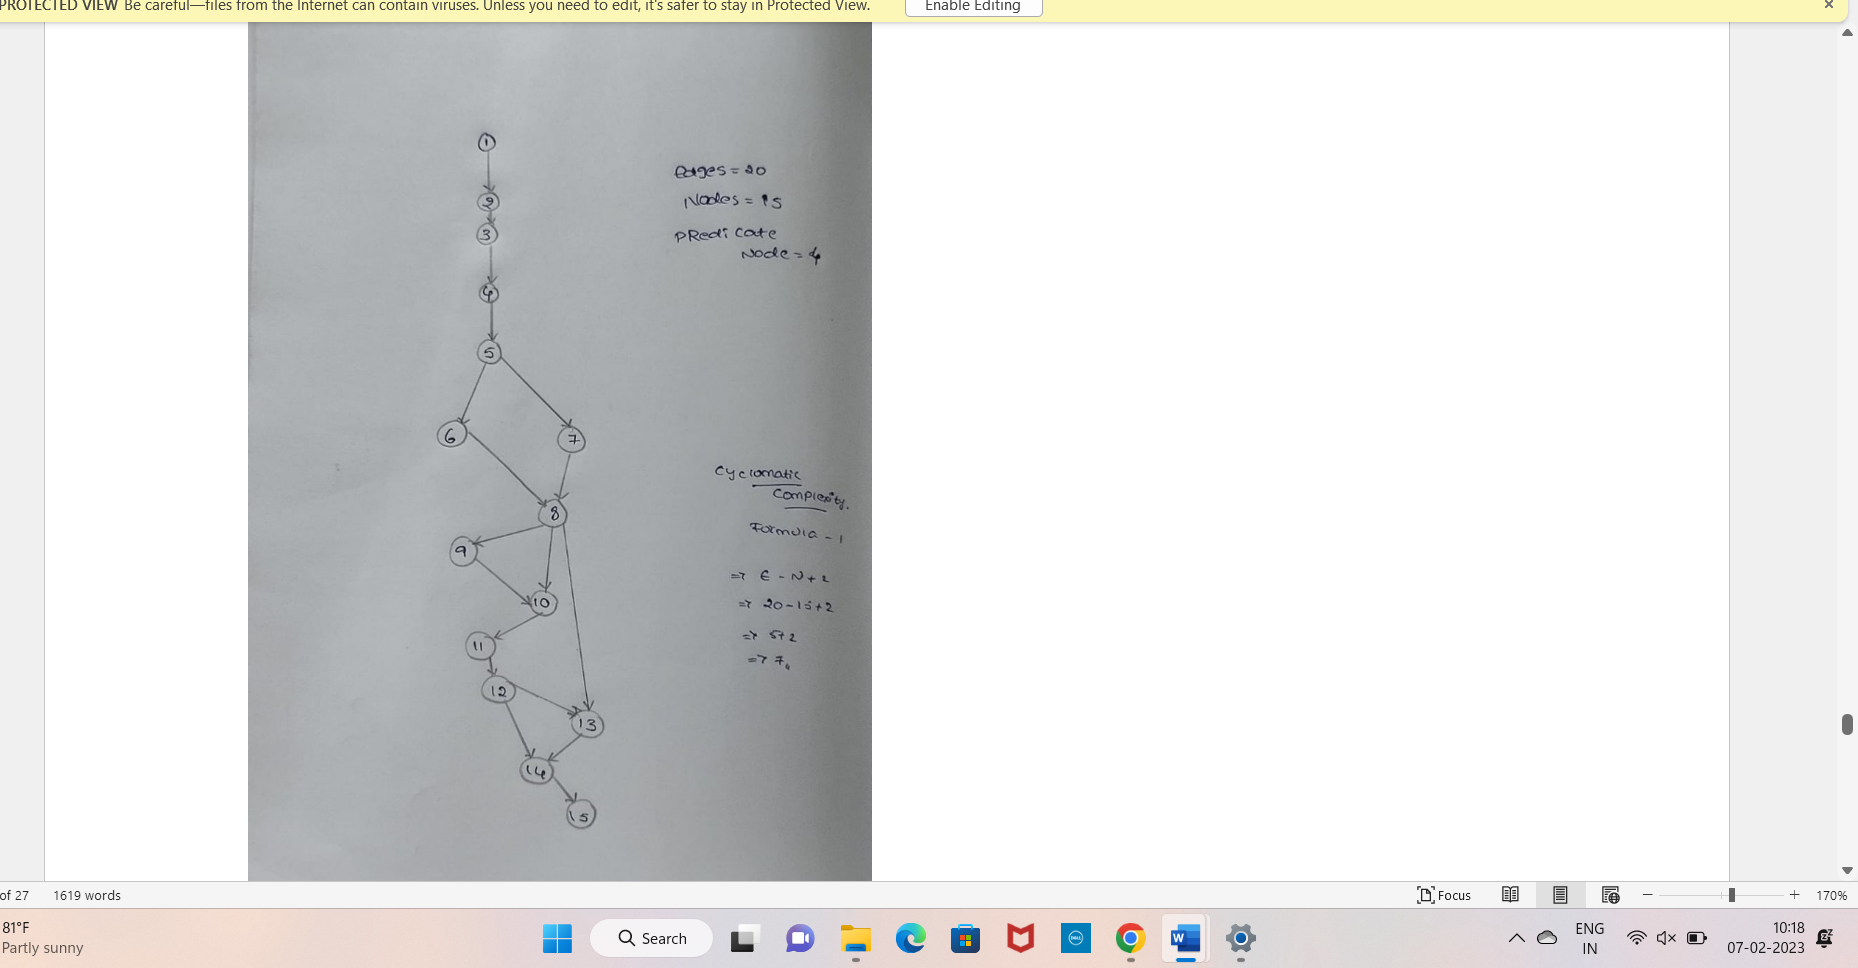 PROTECTED VIEW Be careful—files from the Internet can contain viruses. Unless you need to edit, it's safer to stay in Protected View.
Enable Editing
1
2
3
4
5
6
7
8
9
10
11
12
13
14
15
Edges = 20
Nodes = 15
PRedicate
Node = 4
Cyclomatic
Complexity.
Formula - 1
=> E - N + 2
=> 20 - 15 + 2
=> 5 + 2
=> 7
of 27 1619 words
Focus
170%
81°F
Partly sunny
Search
DELL
W
ENG
IN
10:18
07-02-2023